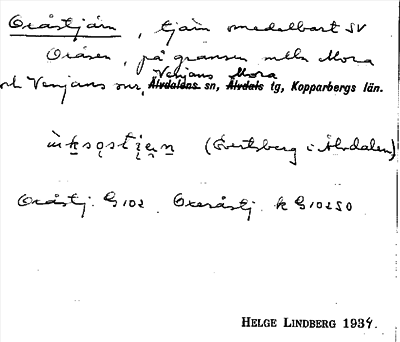 Oxåstjärn, tjärn omedelbart SV
Oxåsen, på gränsen mlln Mora
och Venjans snr, Venjans Mora
Älvdalens sn, Älvdals tg, Kopparbergs län.
(Evertsberg i Älvdalen)
Oxåstj. G 102 Oxeråstj. k G 10250
HELGE LINDBERG 1934.